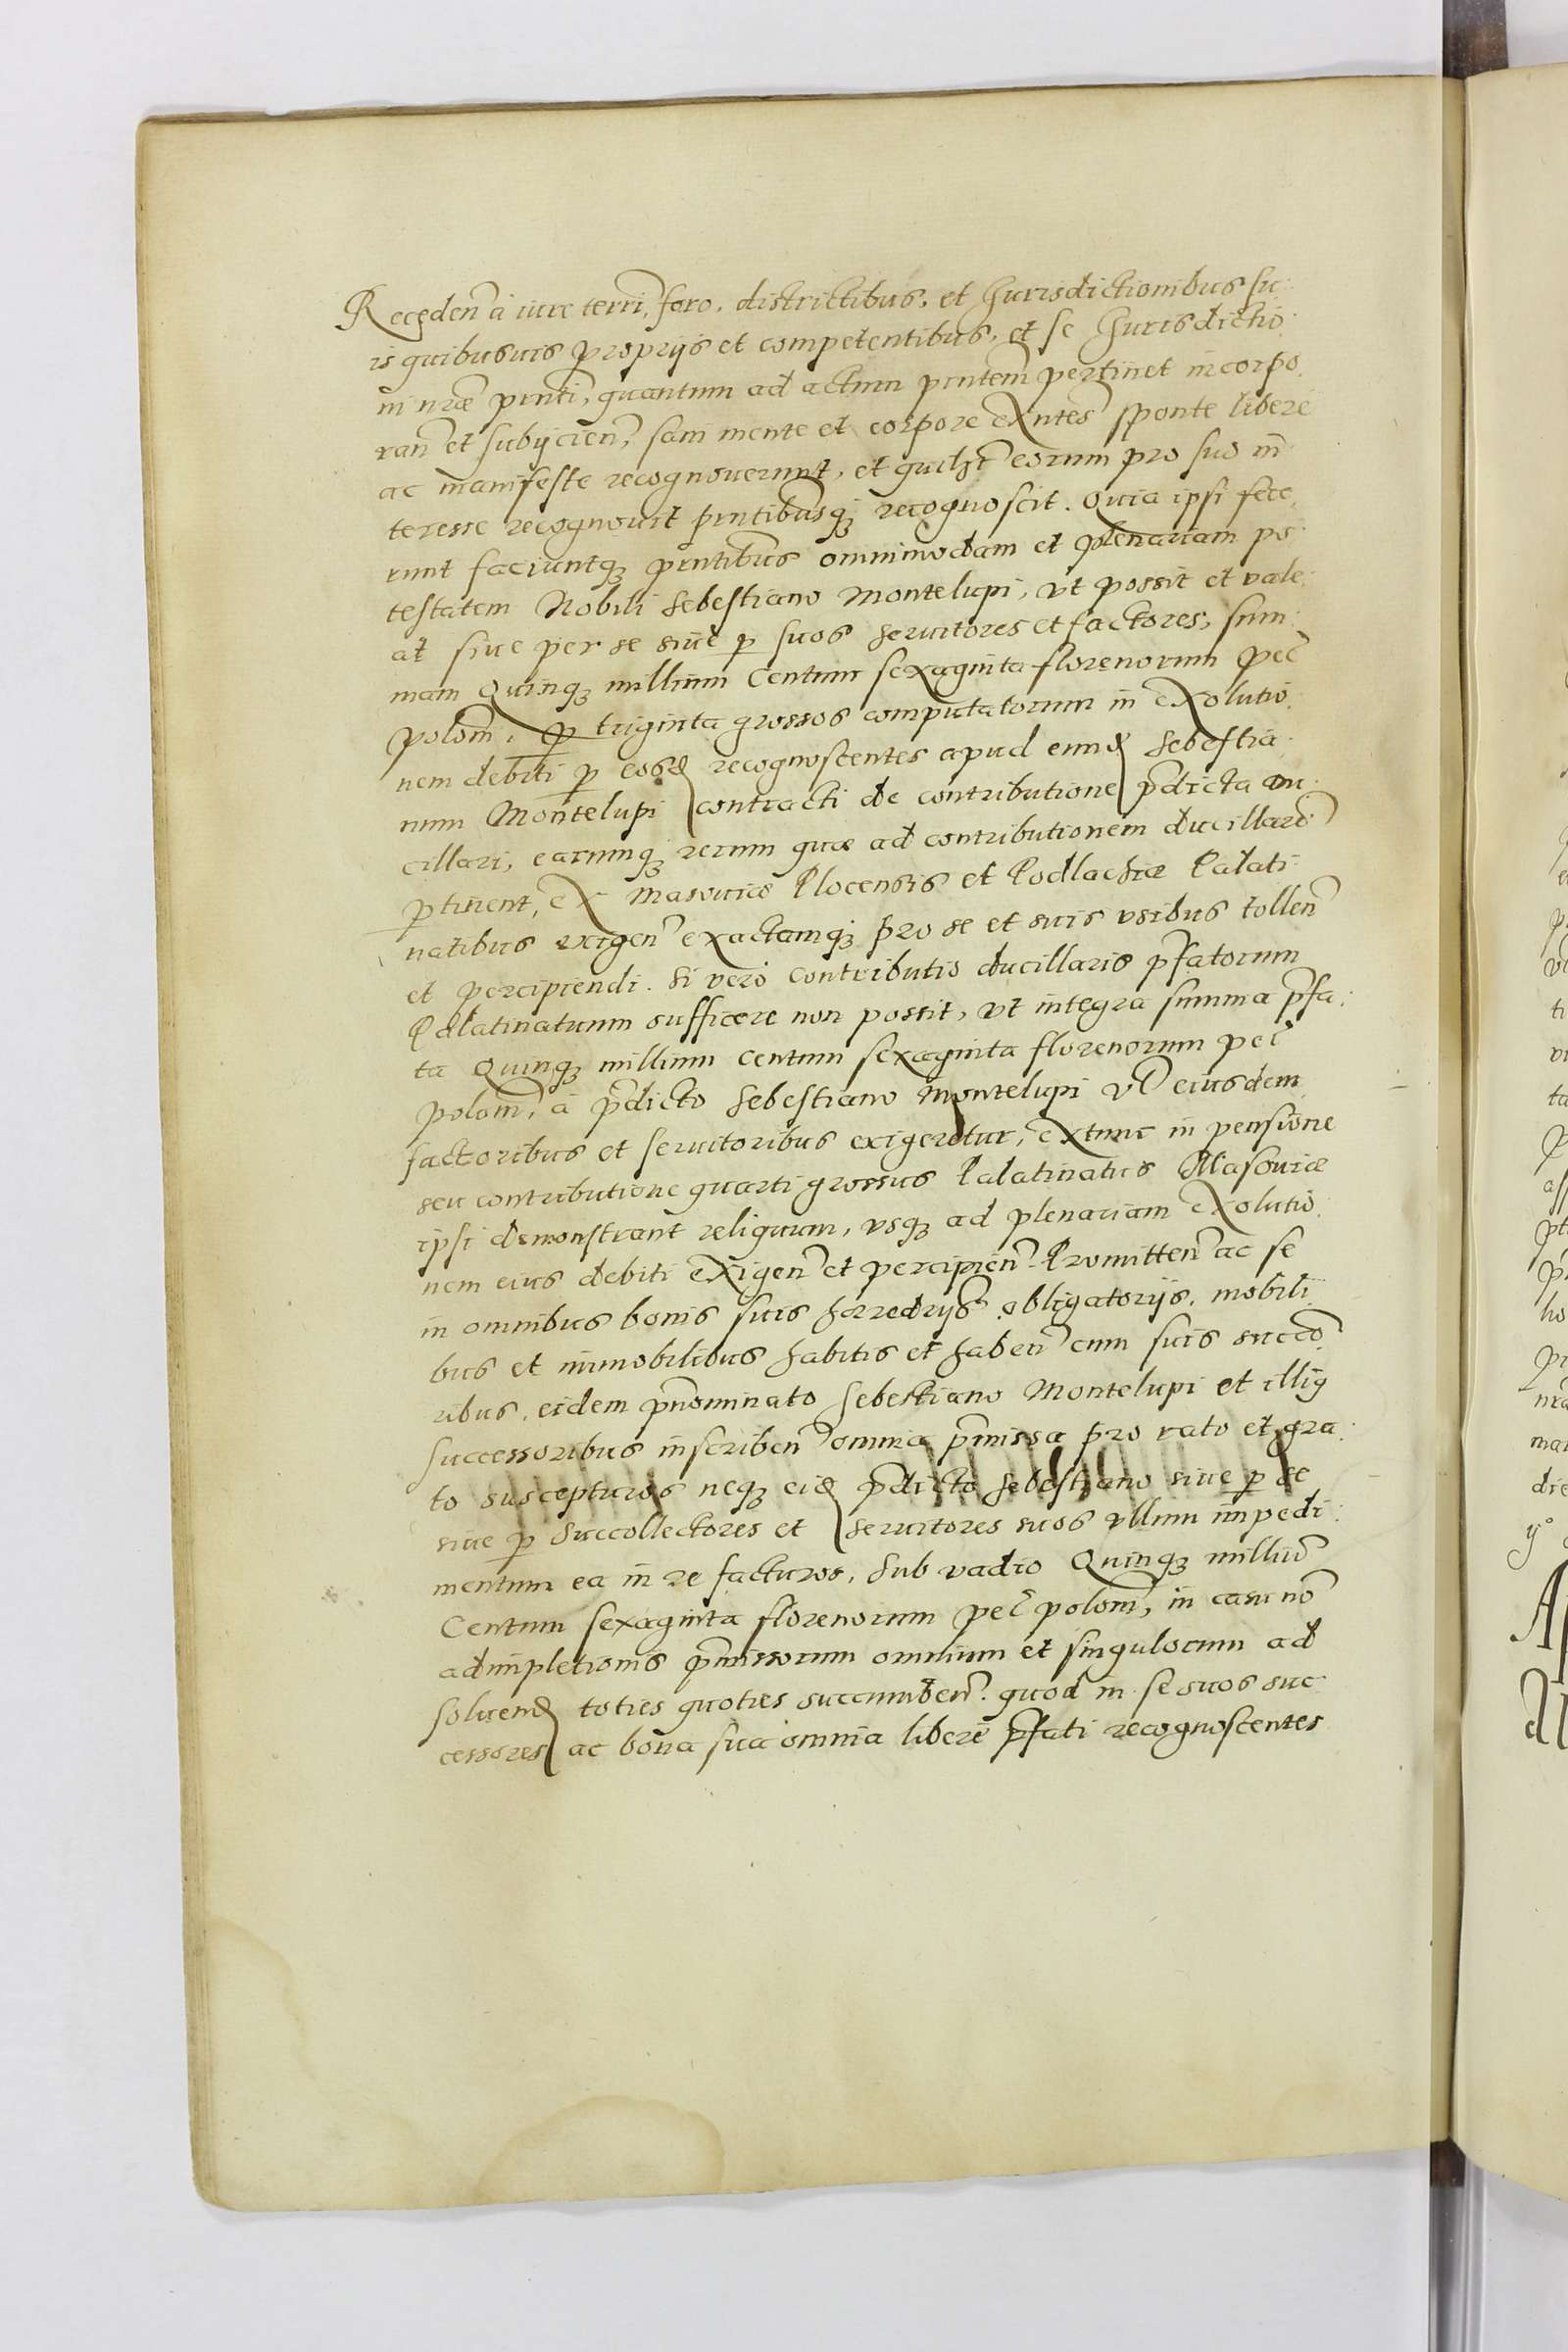 Receden̄ à iure terri, foro, districtibus, et Jurisdictionibus su:
is quibusuis proprijs et competentibus, et se Jurisdictio:
ni nr̄æ pn̄ti, quantum ad actum pn̄tem pertinet incorpo:
ran̄ et subijcien̄, sani mente et corpore exn̄tes sponte libere
ac manifeste recognouerunt, et quilz̄t eorum pro suo in
teresse recognouit pn̄tibusq; recognoscit. Quia ipsi fece
runt faciuntq; pn̄tibus omnimodam et plenariam po
testatem Nobili Sebestiano Montelupi, vt possit et vale
at siue per se siue p suos seruitores et factores, sum:
mam Quinq; millium Centum sexaginta florenorum pec̄
polon̄, p triginta grossos computatorum in exolutio:
nem debiti p eosd recognoscentes apud eund Sebestia:
num Montelupi contracti de contributione p̄dicta du
cillari, earumq; rerum quæ ad contributionem ducillarē
ptinent, ex Masouiæ Plocensis et Podlachiæ Palati:
natibus exigen̄ exactamq; pro se et suis vsibus tollen̄
et percipiendi. Si verò contributio ducillaris p̄fatorum
Palatinatuum sufficere non possit, vt integra summa p̄fa:
ta Quinq; millium Centum sexaginta florenorum pec̄
polon̄, à p̄dicto Sebestiano Montelupi vl̄ eiusdem
factoribus et seruitoribus exigeretur, extunc in pensione
seu contributione quarti grossus Palatinatus Masouiæ
ipsi demonstrant reliquum, vsq; ad plenariam exolutio:
nem eius debiti exigen̄ et percipien̄. Promitten̄ ac se
in omnibus bonis suis hærredrijs obligatorijs, mobili
bus et immobilibus habitis et haben̄ cum suis succō
ribus, eidem p̄nominato Sebestiano Montelupi et illig
successoribus inscriben̄ omnia p̄missa pro rato et gra:
to suscepturos neq; eid p̄dicto Sebestiano siue p se
siue p Succollectores et seruitores suos vllum impedi:
mentum ea in re facturos, Sub vadio Quinq; milliū
Centum sexaginta florenorum pec̄ polon̄, in casu nō
adimpletionis p̄missorum omnium et singulorum ad
soluend toties quoties succumben̄. quod in se suos suc
cessores ac bona sua omnia liberè p̄fati recognoscentes